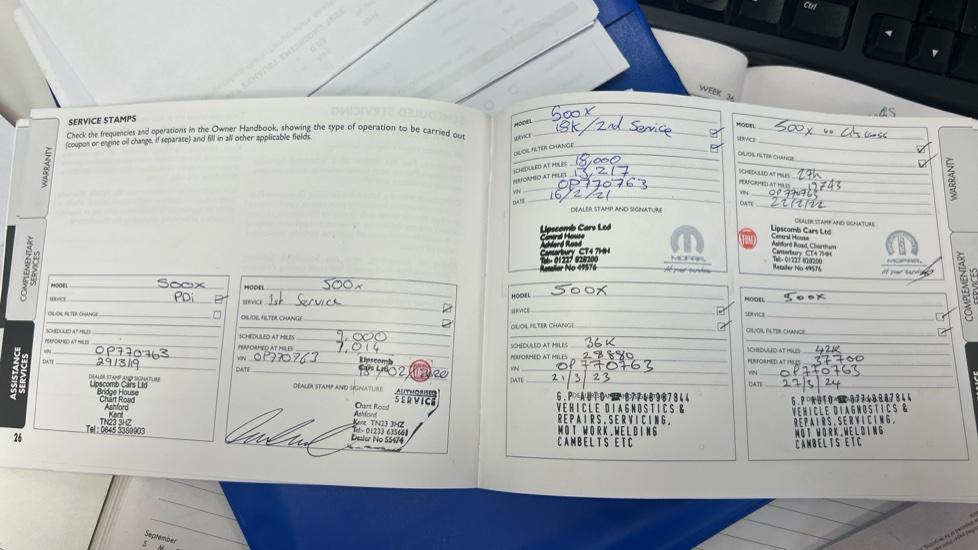 WEEK 36
Ctrl
SERVICE STAMPS
Check the frequencies and operations in the Owner Handbook, showing the type of operation to be carried out
(coupon or engine oil change, if separate) and fill in all other applicable fields.
WARRANTY
COMPLEMENTARY
SERVICES
ASSISTANCE
SERVICES
26
MODEL 500x
SERVICE PDi
OIL/OIL FILTER CHANGE
SCHEDULED AT MILES
PERFORMED AT MILES
VIN OP770763
DATE 29/3/19
DEALER STAMP AND SIGNATURE
Lipscomb Cars Ltd
Bridge House
Chart Road
Ashford
Kent
TN23 3HZ
Tel: 0845 3389903
MODEL 500x
SERVICE 1st Service
OIL/OIL FILTER CHANGE
SCHEDULED AT MILES 9,000
PERFORMED AT MILES 7,014
VIN OP770763
DATE
Lipscomb
Cars Ltd
DEALER STAMP AND SIGNATURE
AUTHORISED
SERVICE
Chart Road
Ashford
Kent TN23 3HZ
Tel: 01233 635661
Dealer No 55474
MODEL 500x
SERVICE 18k/2nd Service
OIL/OIL FILTER CHANGE
SCHEDULED AT MILES 18,000
PERFORMED AT MILES 13,217
VIN OP770763
DATE 16/2/21
DEALER STAMP AND SIGNATURE
Lipscomb Cars Ltd
Central House
Ashford Road
Canterbury CT4 7HH
Tel:- 01227 828200
Retailer No 49576
MOPAR
MODEL 500x
SERVICE
OIL/OIL FILTER CHANGE
SCHEDULED AT MILES 27k
PERFORMED AT MILES
VIN OP770763
DATE 22/2/22
DEALER STAMP AND SIGNATURE
FIAT
Lipscomb Cars Ltd
Central House
Ashford Road, Chartham
Canterbury CT4 7HH
Tel:- 01227 828200
Retailer No 49576
MOPAR
MODEL 500x
SERVICE
OIL/OIL FILTER CHANGE
SCHEDULED AT MILES 36K
PERFORMED AT MILES 28880
VIN OP770763
DATE 21/3/23
VEHICLE DIAGNOSTICS &
REPAIRS.SERVICING,
MOT WORK,WELDING
CAMBELTS ETC
MODEL 500x
SERVICE
OIL/OIL FILTER CHANGE
SCHEDULED AT MILES 42K
PERFORMED AT MILES 37700
VIN OP770763
DATE 27/3/24
VEHICLE DIAGNOSTICS &
REPAIRS.SERVICING,
MOT WORK,WELDING
CAMBELTS ETC
WARRANTY
COMPLEMENTARY
SERVICES
September
5 M